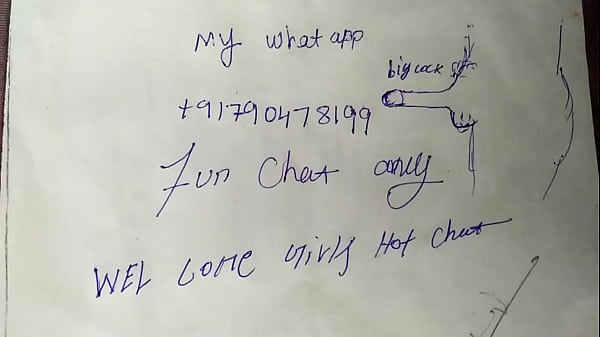 My what app
big cock
+91790478199
Fun Chat only
WEL Come Girls Hot Chat